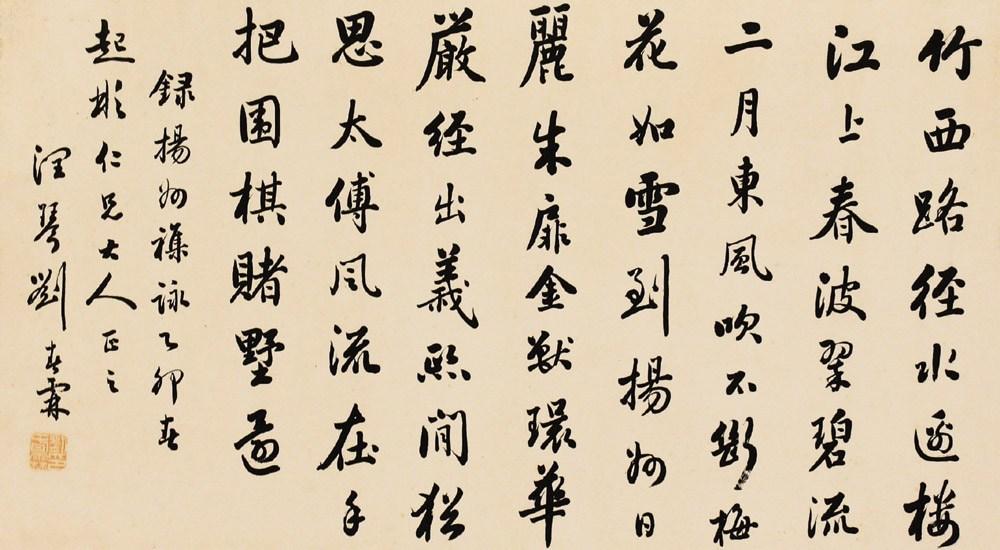 竹西路径水邊楼
江上春波翠碧流
二月東風吹不斷梅
花如雪到揚州日
麗朱扉金獸環華
厳経出義熙間猶
思太傅風流在手
把围棋賭墅還
録揚州襍詠乙卯春
起彬仁兄大人正之
潤琴劉春霖